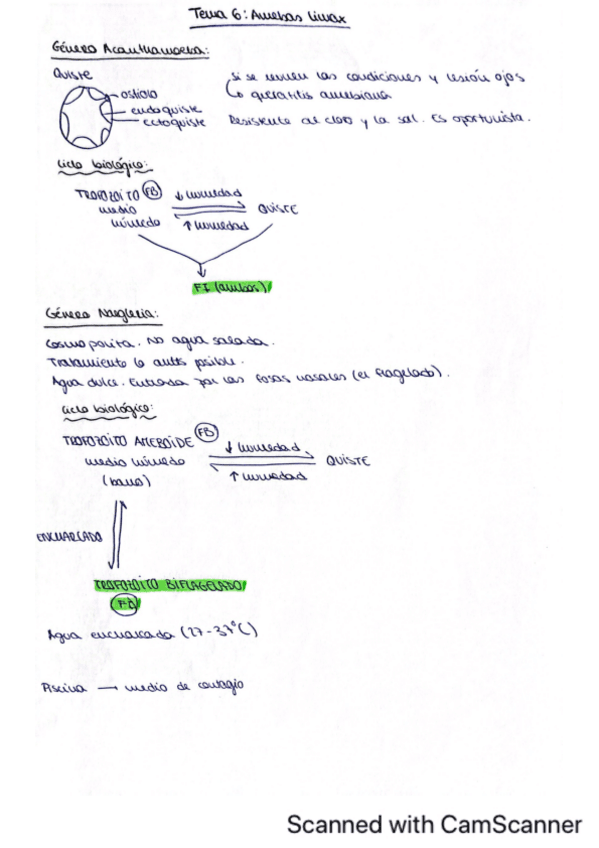 Tema 6: Amebas Limax
Género Acanthamoeba:
Quiste
ostiolo
endoquiste
ectoquiste
Si se reunen las condiciones y lesión ojos
↳ queratitis amebiana
Resistente al cloro y la sal. Es oportunista.
Ciclo biológico:
TROFOZOITO (FB)
medio
húmedo
↓ humedad
↑ humedad
QUISTE
FI (ambos)
Género Naegleria:
Cosmopolita. No agua salada.
Tratamiento lo antes posible.
Agua dulce. Entrada por las fosas nasales (el flagelado).
Ciclo biológico:
TROFOZOITO AMEBOIDE (FB)
medio húmedo
(barro)
↓ humedad
↑ humedad
QUISTE
ENCHARCADO
TROFOZOITO BIFLAGELADO
(FI)
Agua encharcada (27-37ºC)
Piscina → medio de contagio
Scanned with CamScanner